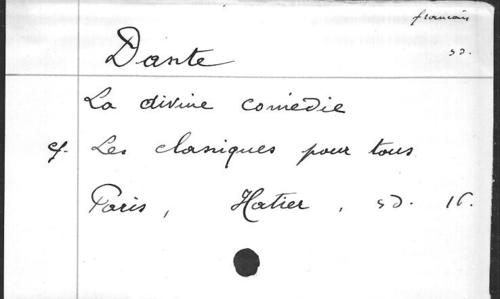 français
Dante
s.d.
La divine comédie
cf. Les classiques pour tous
Paris, Hatier, s.d. 16.